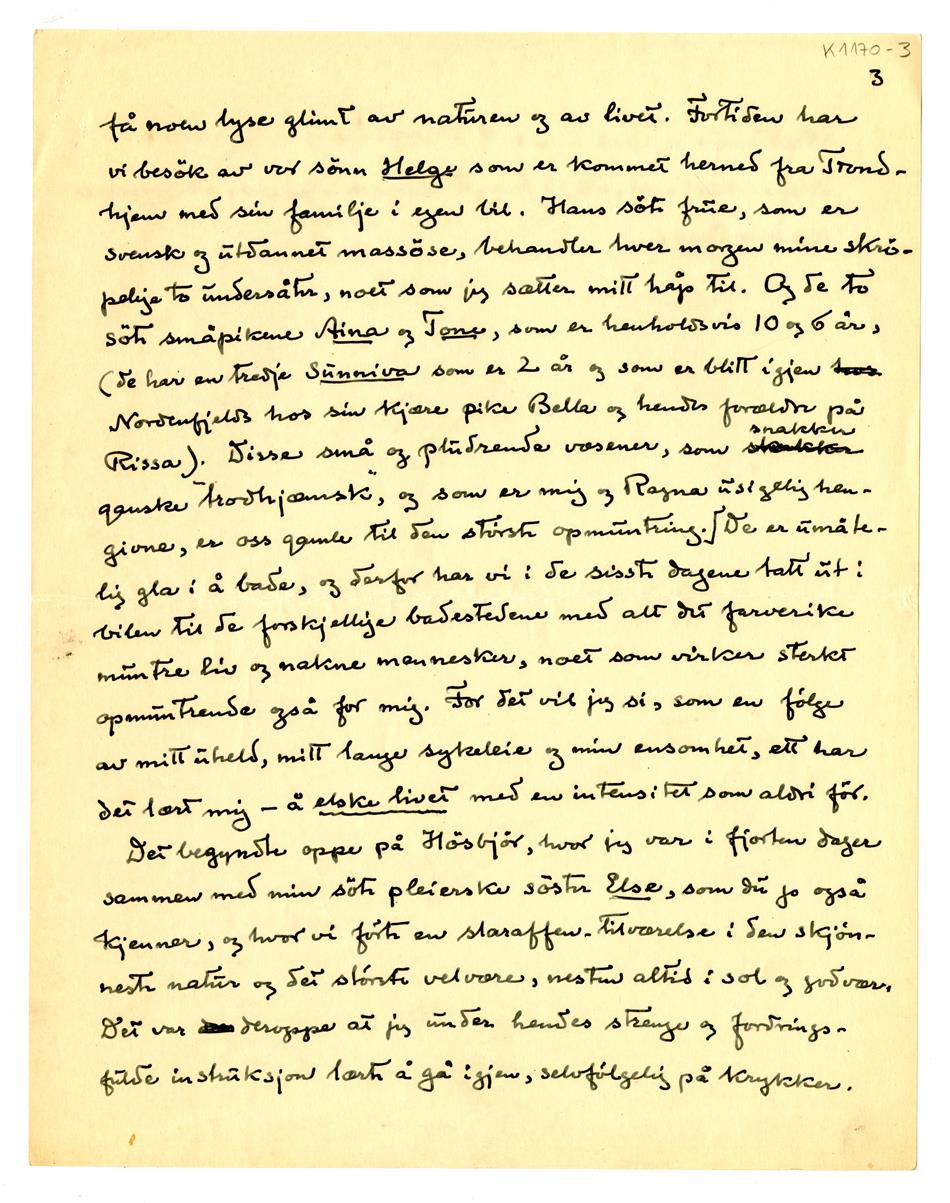 K1170-3
3
få noen lyse glimt av naturen og av livet. Fortiden har
vi besök av vor sönn Helge som er kommet herned fra Trond-
hjem med sin familje i egen bil. Hans söte frue, som er
svensk og utdannet massöse, behandler hver morgen mine skrö-
pelige to undersåtter, noet som jeg sætter mitt håp til. Og de to
söte småpikene Aina og Tone, som er henholdsvis 10 og 6 år,
(de har en tredje Sunniva som er 2 år og som er blitt igjen hos
Nordenfjelds hos sin kjære pike Bella og hendes forældre på
snakker
Rissa). Disse små og pludrende væsener, som
ganske "trodhjæmsk", og som er mig og Ragna usigelig hen-
givne, er oss gamle til den störste opmuntring. De er umåte-
lig gla i å bade, og derfor har vi i de sisste dagene tatt ut i
bilen til de forskjellige badestedene med alt det farverike
muntre liv og nakne mennesker, noet som virker sterkt
opmuntrende også for mig. For det vil jeg si, som en fölge
av mitt uheld, mitt lange sykeleie og min ensomhet, ett har
det lært mig – å elske livet med en intensitet som aldri för.
Det begyndte oppe på Hösbjör, hvor jeg var i fjorten dager
sammen med min söte pleierske söster Else, som du jo også
kjenner, og hvor vi förte en slaraffen-tilværelse i den skjön-
neste natur og det störste velvære, nesten altid i sol og godvær.
Det var deroppe at jeg under hendes strenge og fordrings-
fulde instruksjon lærte å gå igjen, selvfölgelig på krykker.